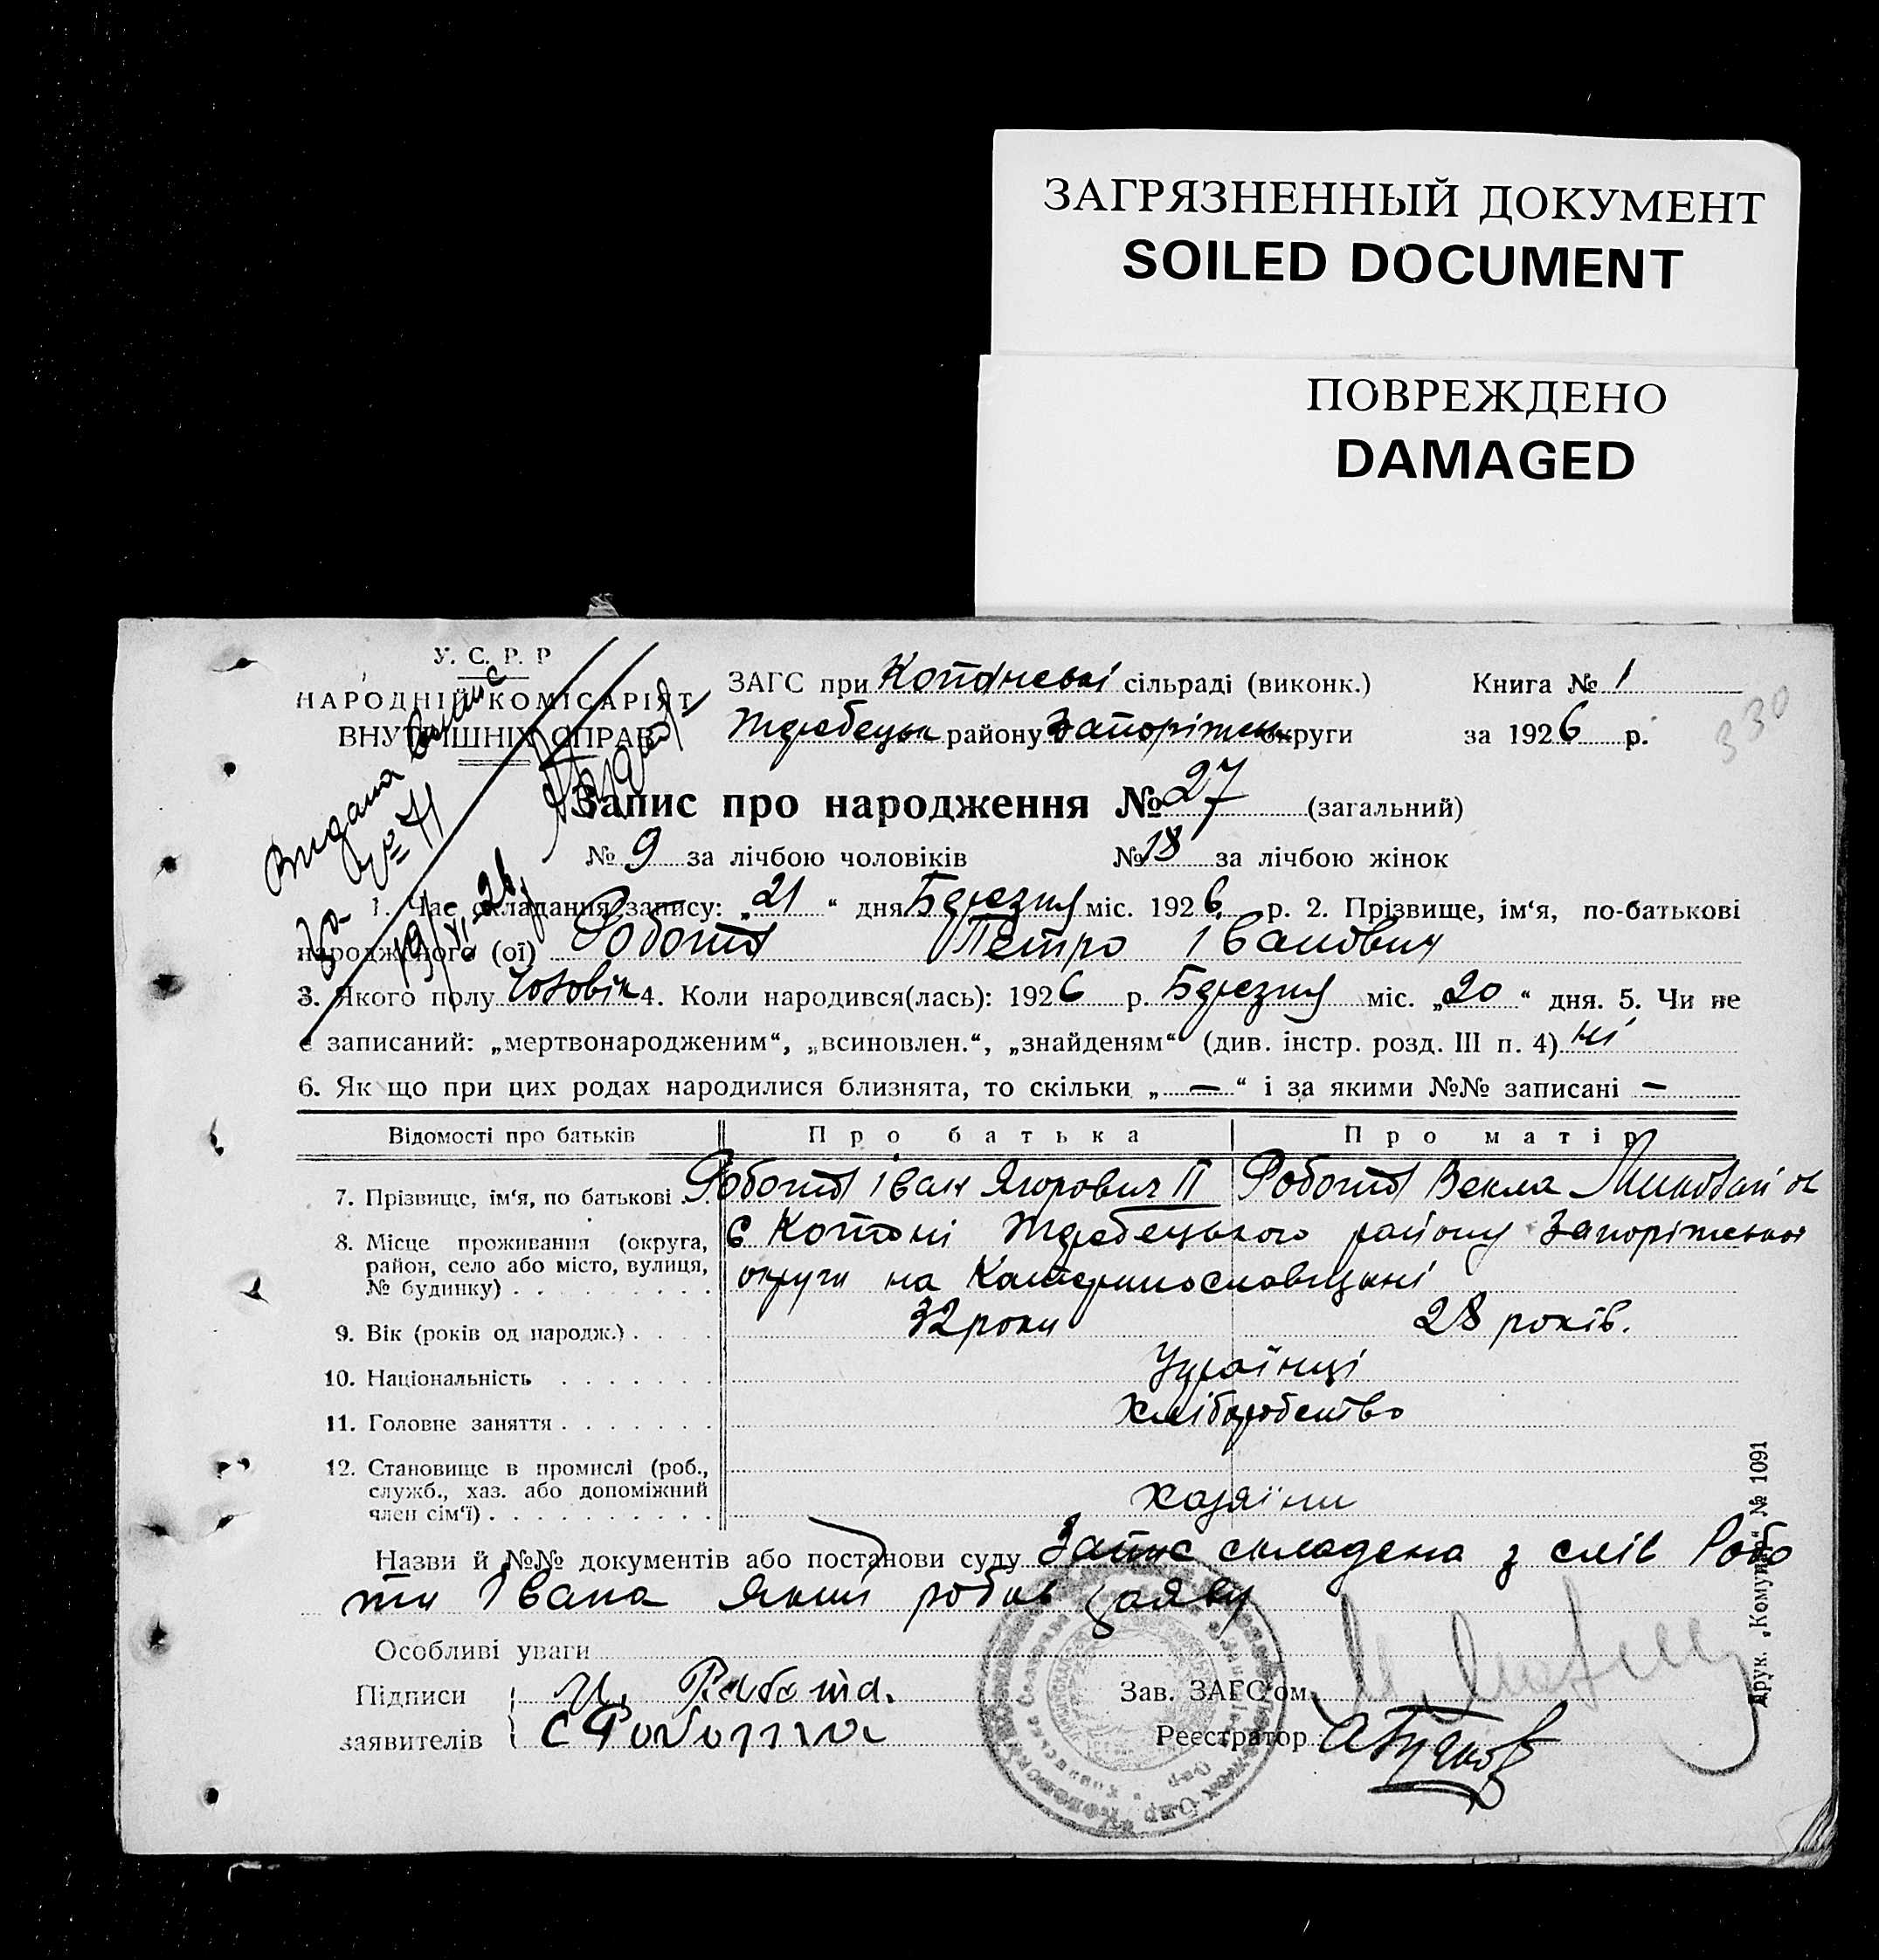 ЗАГРЯЗНЕННЫЙ ДОКУМЕНТ
SOILED DOCUMENT
ПОВРЕЖДЕНО
DAMAGED
У. С. Р. Р
НАРОДНІЙ КОМІСАРІЯТ
ВНУТРІШНІХ СПРАВ
ЗАГС при сільраді (виконк.)
Книга № 1
району Запоріжськ округи
за 1926 р.
330
Видана виписс
№ 71
Запис про народження № 27 (загальний)
№ 9 за лічбою чоловіків № 18 за лічбою жінок
1. Час складання запису: „21“ дня Березня міс. 1926 р. 2. Прізвище, ім‘я, по-батькові
народженого (ої) Робота Петро Іванович
3. Якого полу Чоловік 4. Коли народився(лась): 1926 р. Березня міс. „20“ дня. 5. Чи не
є записаний: „мертвонародженим“, „всиновлен.“, „знайденям“ (див. інстр. розд. III п. 4) ні
6. Як що при цих родах народилися близнята, то скільки „—“ і за якими №№ записані —
Відомості про батьків Про батька Про матір
7. Прізвище, ім‘я, по батькові Робота Іван Ягорович II Робота Векла
8. Місце проживання (округа, район, село або місто, вулиця, № будинку)
района Запоріжської
округи на Катеринославщині
9. Вік (років од народж.) 32 роки 28 років.
10. Національність Українці
11. Головне заняття Хліборобство
12. Становище в промислі (роб., служб., хаз. або допоміжний член сім‘ї) Хазяіни
Назви й №№ документів або постанови суду Запис складено з слів Робо
ти Івана Який робив заяву
Особливі уваги
Підписи И. Работа.
заявителів С Робота
Зав. ЗАГС‘ом
Реєстратор
Друк. „Комунар“ № 1091